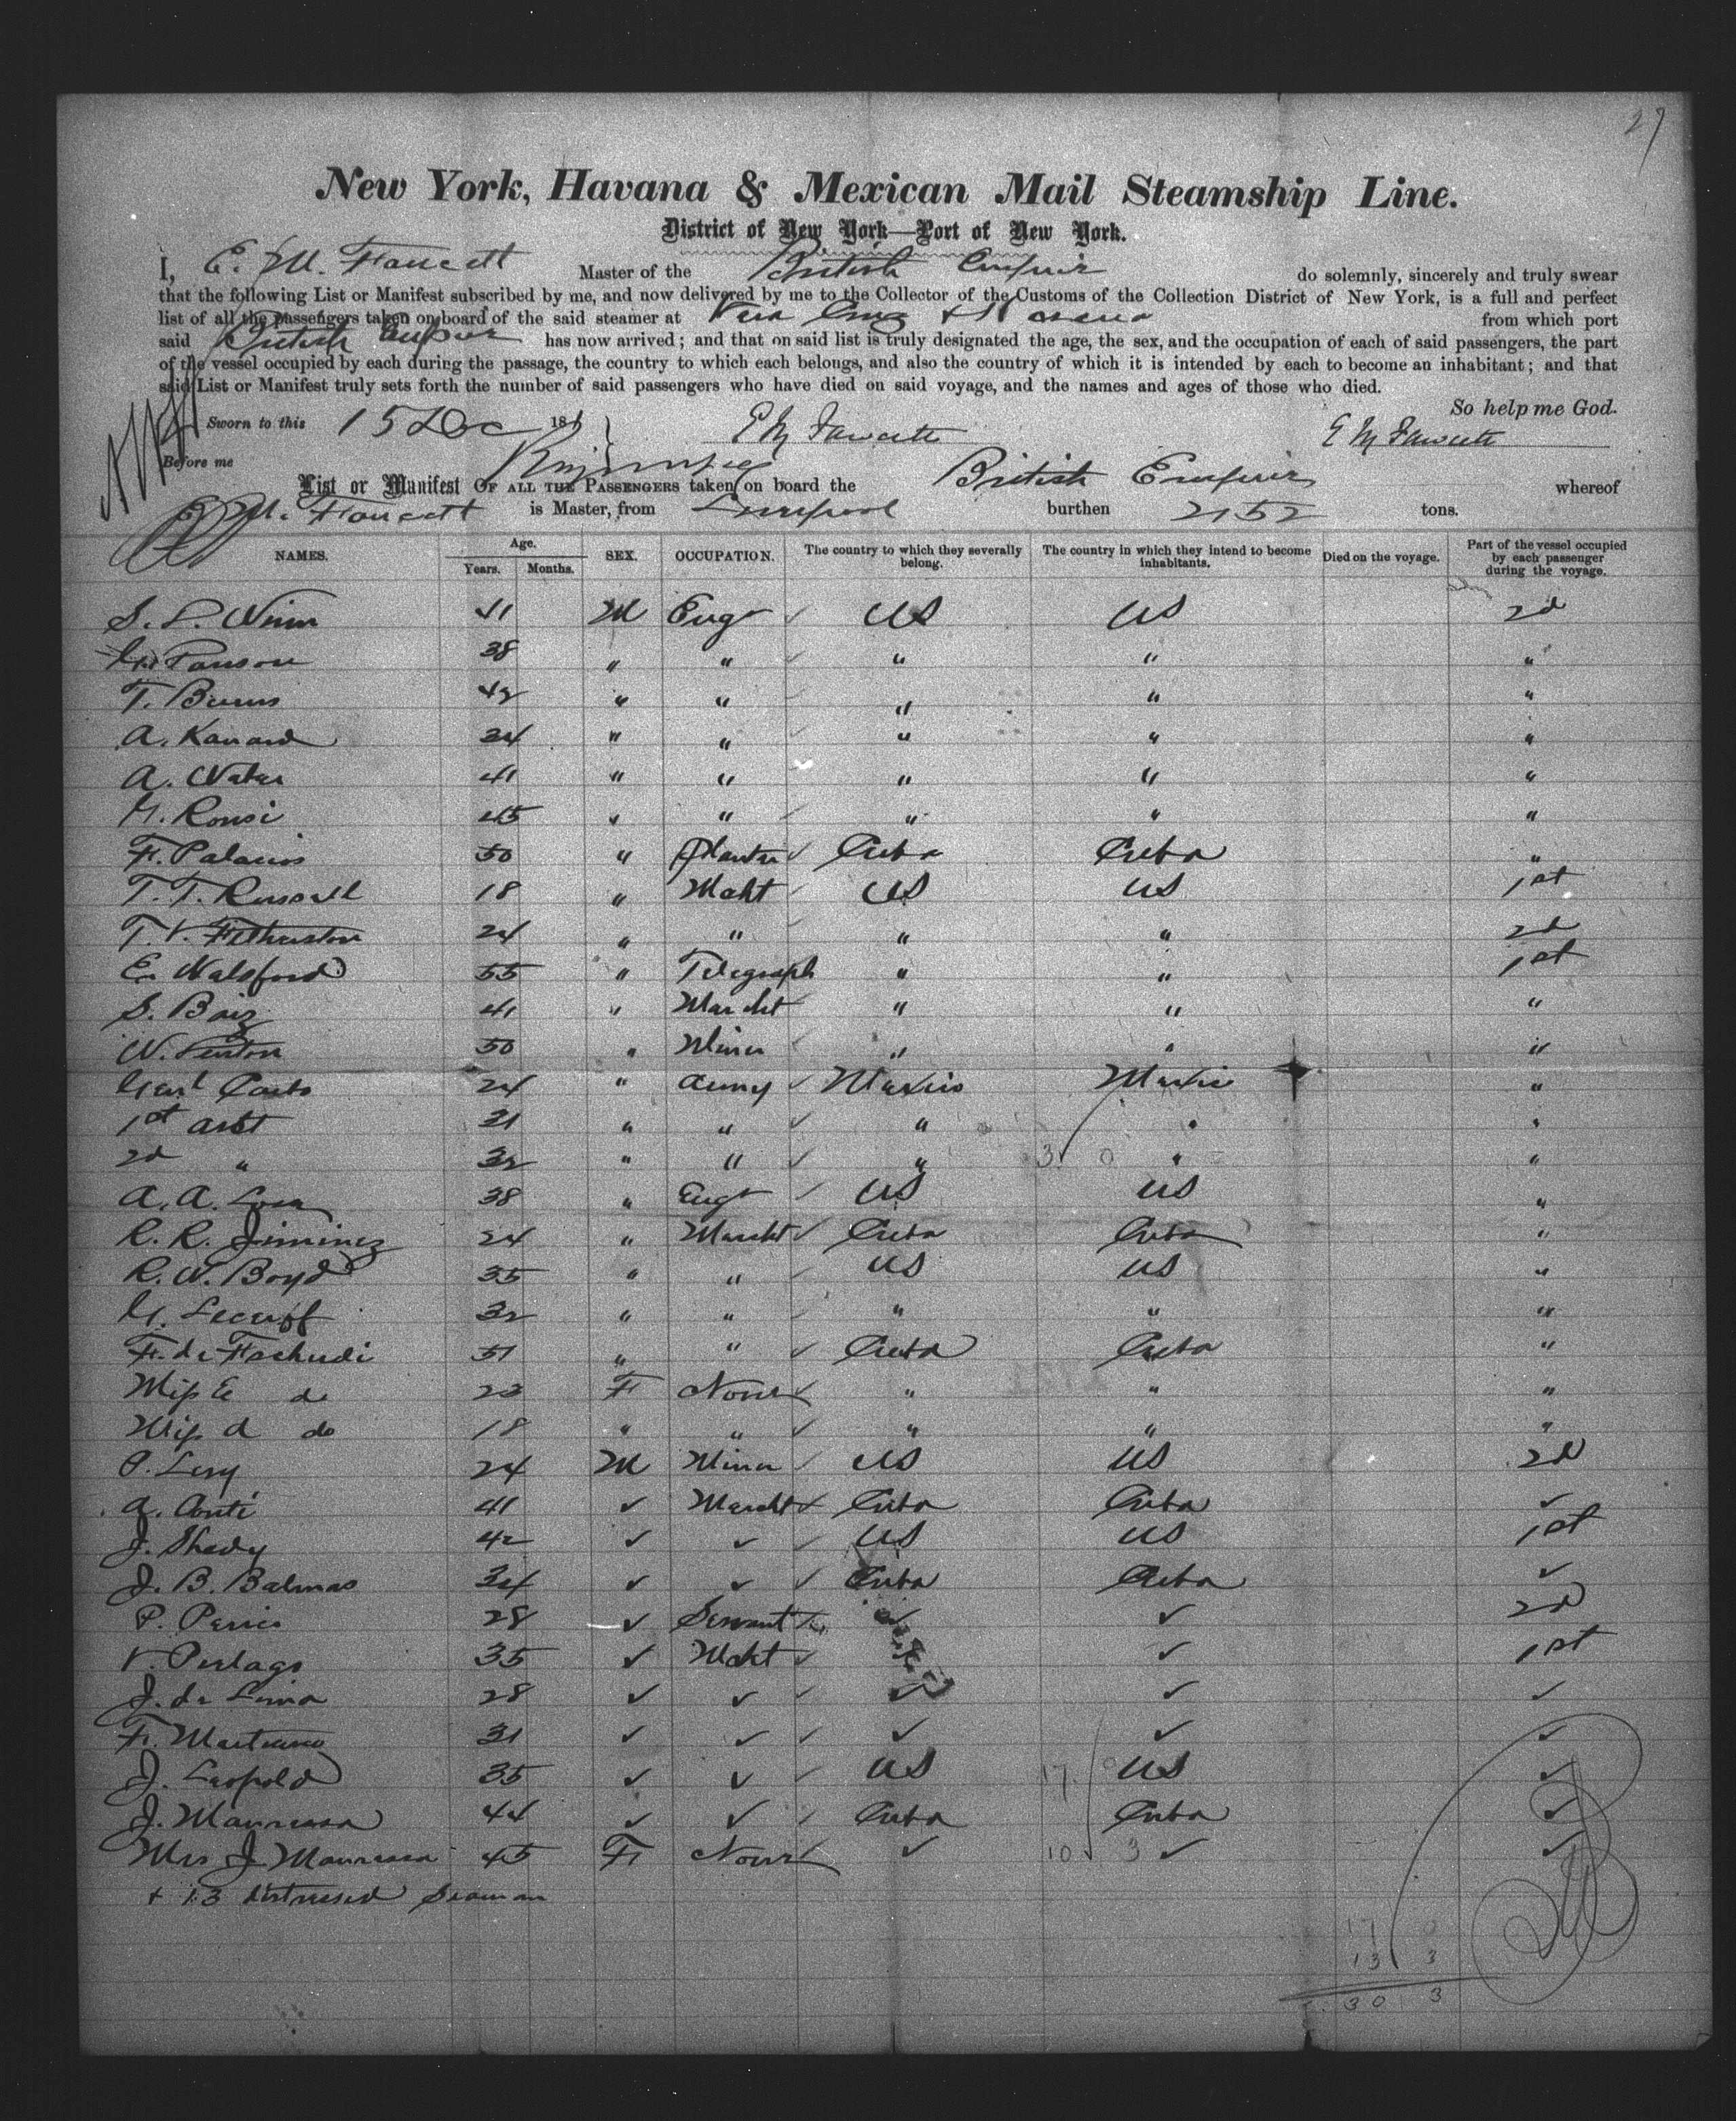 27
New York, Havana & Mexican Mail Steamship Line.
District of New York—Port of New York.
I, E. M. Faucett Master of the British Empire do solemnly, sincerely and truly swear
that the following List or Manifest subscribed by me, and now delivered by me to the Collector of the Customs of the Collection District of New York, is a full and perfect
list of all the passengers taken on board of the said steamer at Vera Cruz & Havana from which port
said British Empire has now arrived; and that on said list is truly designated the age, the sex, and the occupation of each of said passengers, the part
of the vessel occupied by each during the passage, the country to which each belongs, and also the country of which it is intended by each to become an inhabitant; and that
said List or Manifest truly sets forth the number of said passengers who have died on said voyage, and the names and ages of those who died.
So help me God.
Sworn to this 15 Dec 188 E M Fawcett E M Fawcett
Before me
List or Manifest OF ALL THE PASSENGERS taken on board the British Empire whereof
E. M. Faucett is Master, from Liverpool burthen 2152 tons.
NAMES. Age. Years. Months. SEX. OCCUPATION. The country to which they severally belong. The country in which they intend to become inhabitants. Died on the voyage. Part of the vessel occupied by each passenger during the voyage.
S. L. Winn 41 M Engr US US 2d
Panson 38 " " " " "
T. Burns 42 " " " " "
A. Kanard 34 " " " " "
A. Natus 41 " " " " "
Ronsi 45 " " " " "
F. Palacios 50 " Planter Cuba Cuba "
T. T. Russell 18 " Mcht US US 1st
T. V. 24 " " " " 2d
E. Walsford 55 " Telegraph " " 1st
S. Baiz 41 " Marcht " " "
W. Lenton 50 " Miner " " "
24 " Army Mexico Mexico "
1st asst 31 " " " " "
2d " 32 " " " " "
A. A. 38 " Engr US US "
R. R. Jiminez 24 " Marcht Cuba Cuba "
R. W. Boyd 35 " " US US "
32 " " " " "
F. de 51 " " Cuba Cuba "
Miss E do 22 F None " " "
Miss A do 18 " " " " "
P. Levy 24 M Miner US US 2d
A. Conti 41 ✓ Marcht Cuba Cuba ✓
J. Shedy 42 ✓ ✓ US US 1st
J. B. Balmas 34 ✓ ✓ Cuba Cuba ✓
P. 28 ✓ Servant ✓ ✓ 2d
V. 35 ✓ Mcht ✓ 1st
J. de Lima 28 ✓ ✓ ✓ ✓ ✓
F. 31 ✓ ✓ ✓ ✓ ✓
J. Leopold 35 ✓ ✓ US US ✓
J. Manresa 44 ✓ ✓ Cuba Cuba ✓
Mrs J Manresa 45 F None ✓ ✓ ✓
+ 13 distressed Seaman
17 0
13 3
30 3